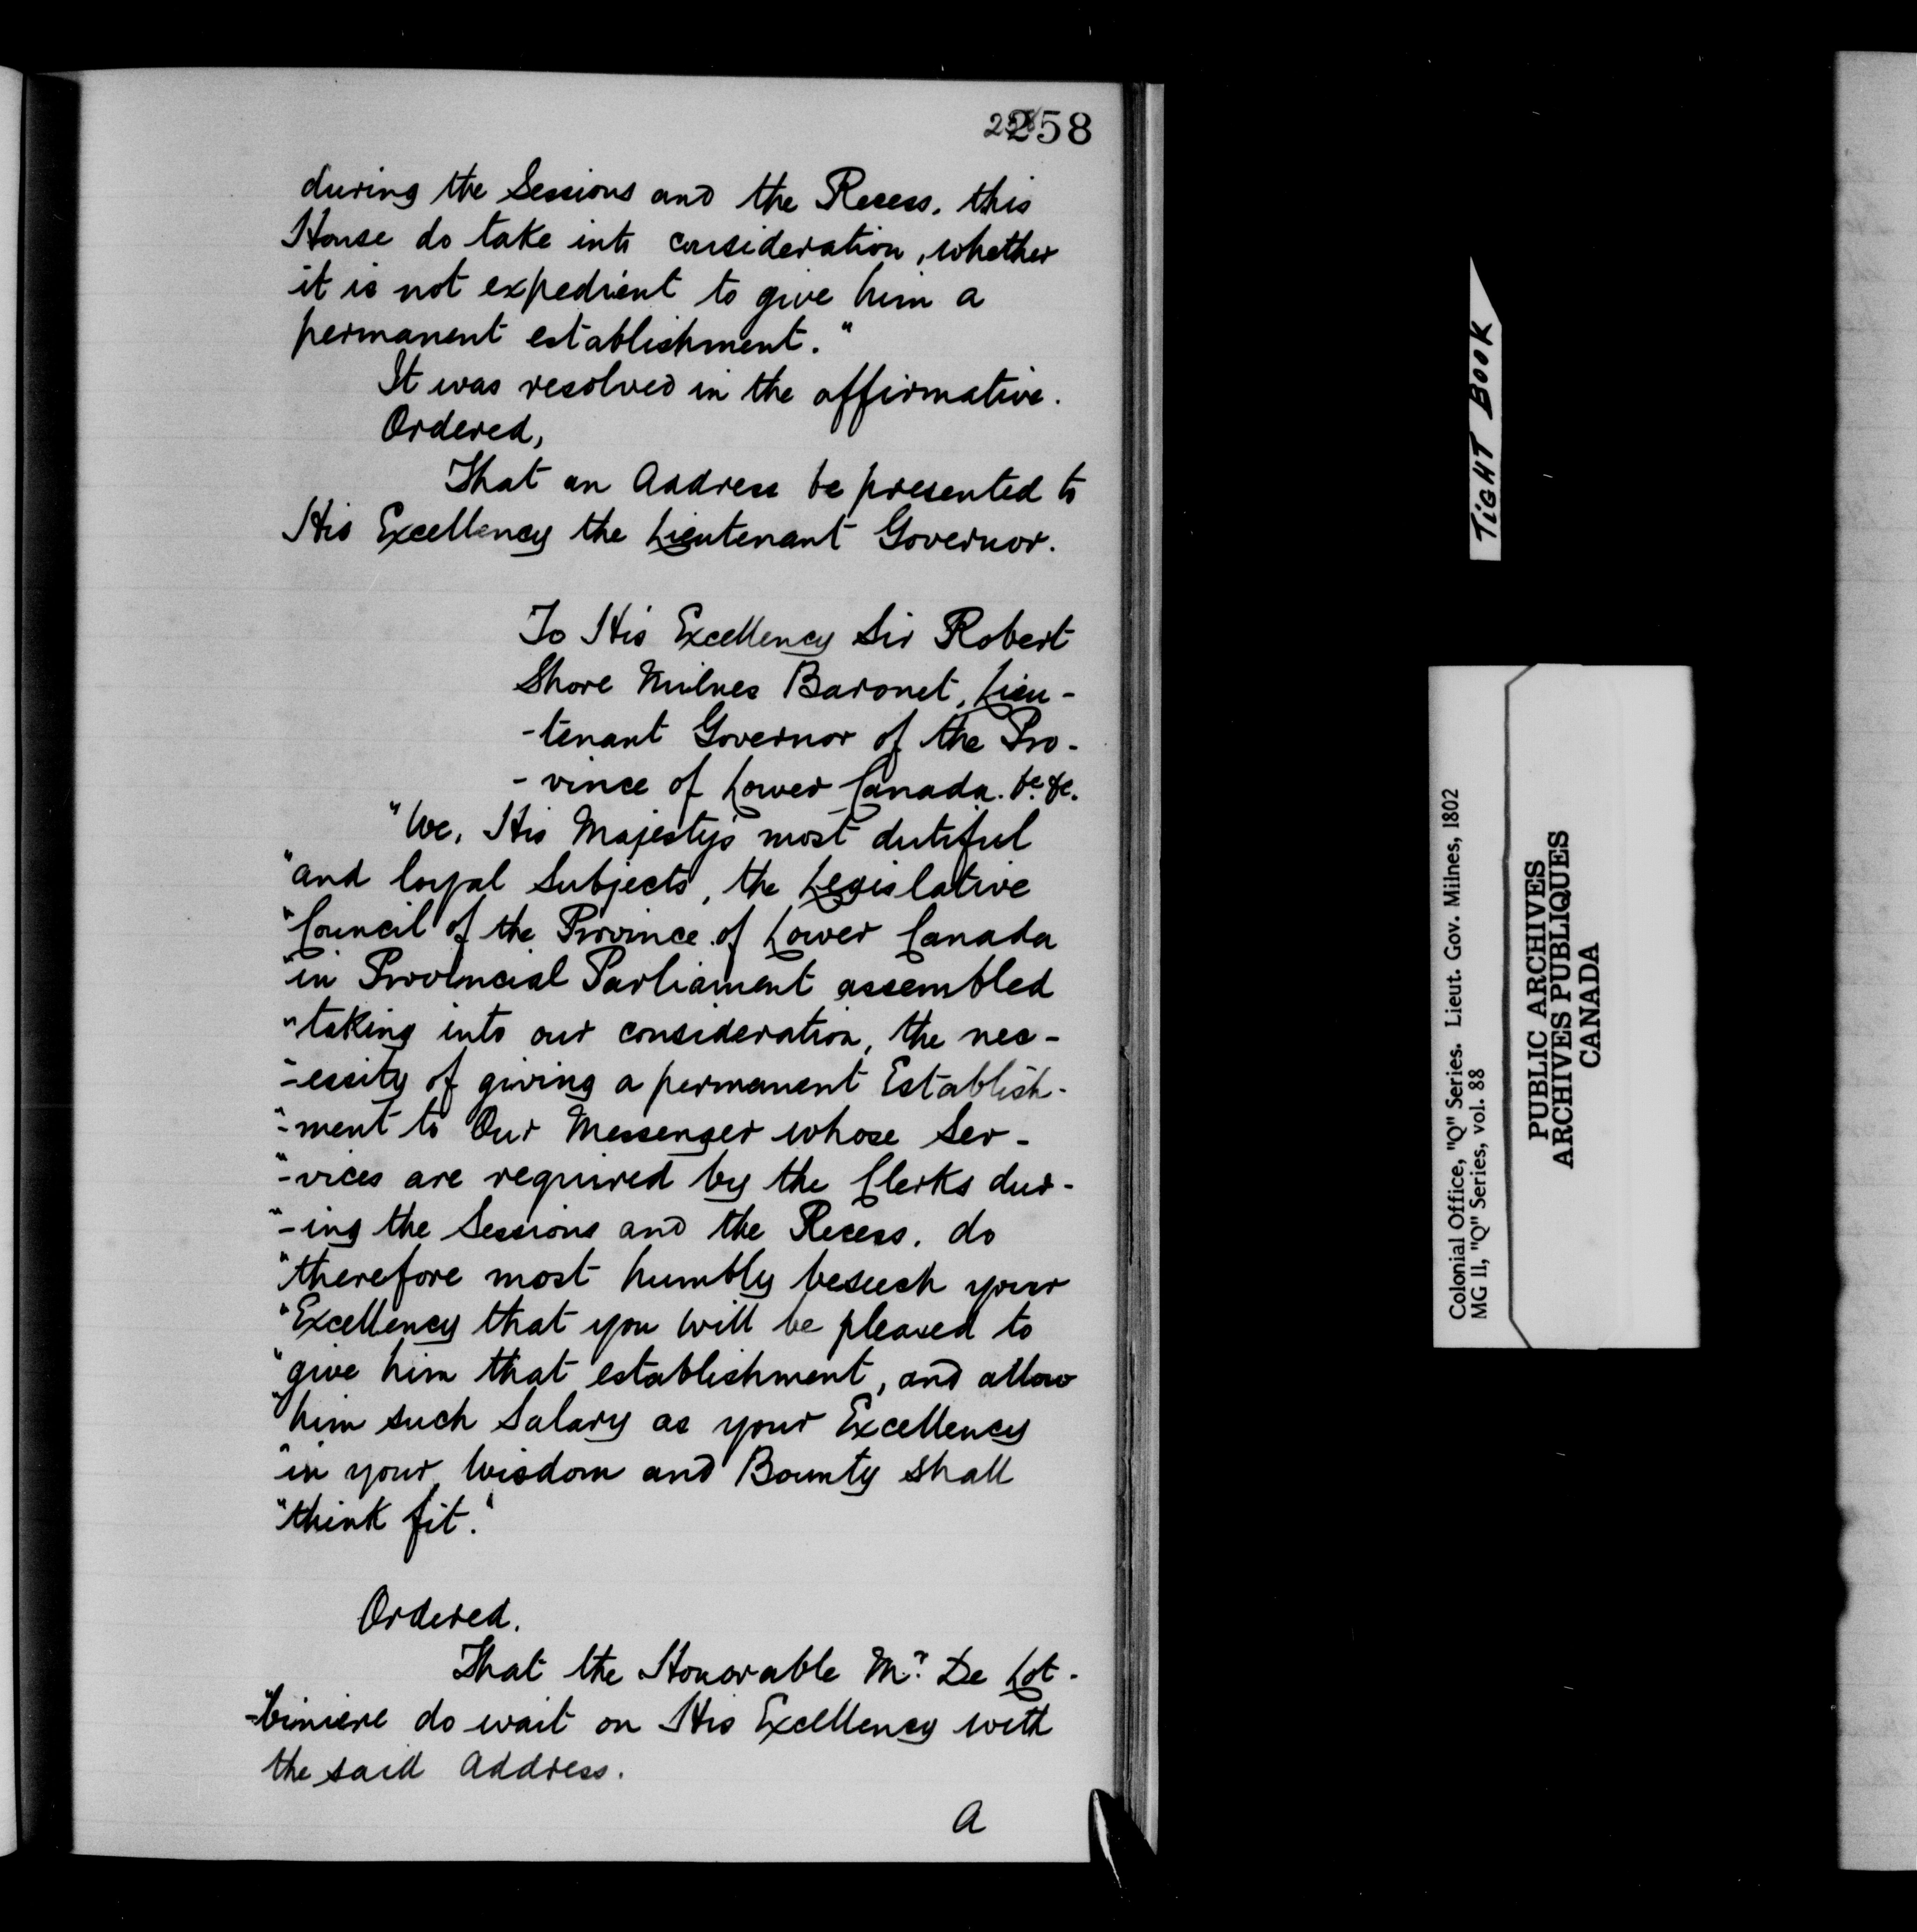 258
during the Sessions and the Recess, this
House do take into consideration, whether
it is not expedient to give him a
permanent establishment."
It was resolved in the affirmative.
Ordered,
That an Address be presented to
His Excellency the Lieutenant Governor.
To His Excellency Sir Robert
Shore Milnes Baronet, Lieu-
-tenant Governor of the Pro-
-vince of Lower Canada. &c. &c.
"We, His Majesty's most dutiful
"and loyal Subjects, the Legislative
"Council of the Province of Lower Canada
"in Provincial Parliament assembled
"taking into our consideration, the nec-
"-essity of giving a permanent Establish-
"-ment to Our Messenger whose Ser-
"-vices are required by the Clerks dur-
"-ing the Sessions and the Recess, do
"therefore most humbly beseech your
"Excellency that you will be pleased to
"give him that establishment, and allow
"him such Salary as your Excellency
"in your Wisdom and Bounty shall
"think fit."
Ordered.
That the Honorable Mr. De Lot-
-biniere do wait on His Excellency with
the said Address.
A
TIGHT BOOK
Colonial Office, "Q" Series. Lieut. Gov. Milnes, 1802
MG 11, "Q" Series, vol. 88
PUBLIC ARCHIVES
ARCHIVES PUBLIQUES
CANADA